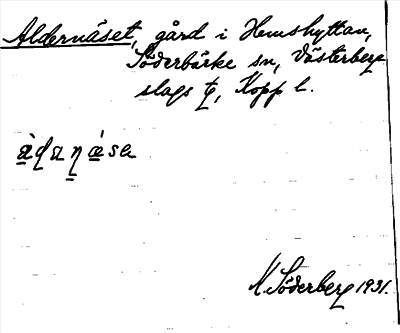 Aldernäset, gård i Hemshyttan,
Söderbärke sn, Västerberg
slags tg, Kopp l.
M. Söderberg 1931.